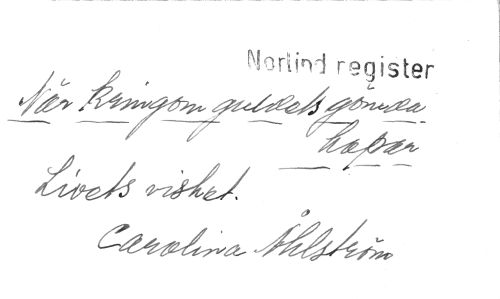 Norlind register
När kringom guldets gömda
hopar
Livets vishet.
Carolina Åhlström